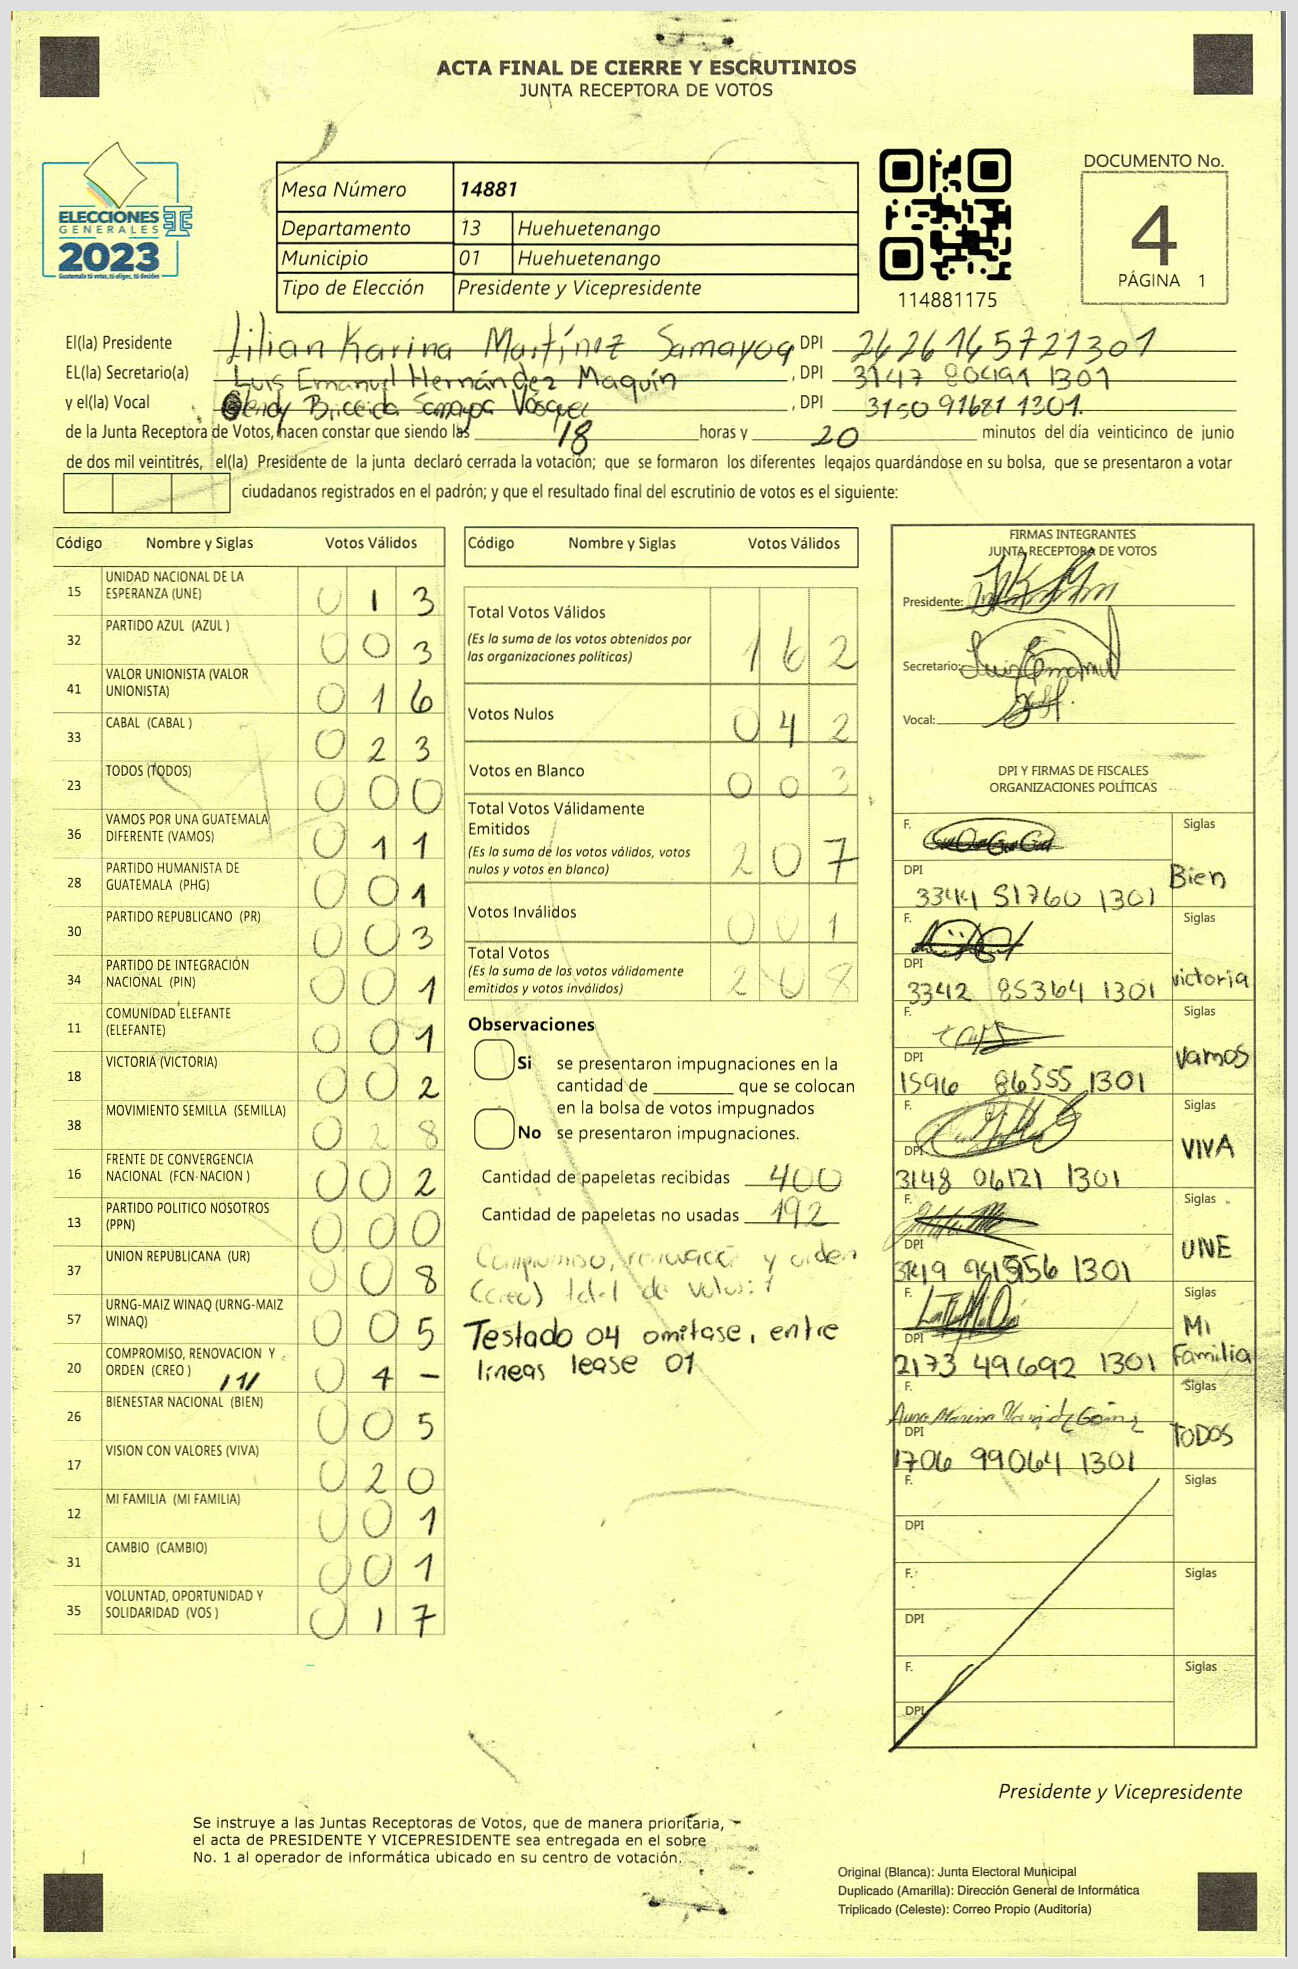 ACTA FINAL DE CIERRE Y ESCRUTINIOS
JUNTA RECEPTORA DE VOTOS
ELECCIONES
GENERALES
2023
Guatemala tú votas, tú eliges, tú decides
Mesa Número 14881
Departamento 13 Huehuetenango
Municipio 01 Huehuetenango
Tipo de Elección Presidente y Vicepresidente
114881175
DOCUMENTO No.
4
PÁGINA 1
El(la) Presidente Lilian Karina Martínez Samayoa DPI 2626165721301
EL(la) Secretario(a) Luis Emanuel Hernández Maquín , DPI 3147 80491 1301
y el(la) Vocal Samayoa Vásquez , DPI 3150 91681 1301.
de la Junta Receptora de Votos, hacen constar que siendo las 18 horas y 20 minutos del día veinticinco de junio
de dos mil veintitrés, el(la) Presidente de la junta declaró cerrada la votación; que se formaron los diferentes legajos guardándose en su bolsa, que se presentaron a votar
ciudadanos registrados en el padrón; y que el resultado final del escrutinio de votos es el siguiente:
Código Nombre y Siglas Votos Válidos
15 UNIDAD NACIONAL DE LA ESPERANZA (UNE) 0 1 3
32 PARTIDO AZUL (AZUL ) 0 0 3
41 VALOR UNIONISTA (VALOR UNIONISTA) 0 1 6
33 CABAL (CABAL ) 0 2 3
23 TODOS (TODOS) 0 0 0
36 VAMOS POR UNA GUATEMALA DIFERENTE (VAMOS) 0 1 1
28 PARTIDO HUMANISTA DE GUATEMALA (PHG) 0 0 1
30 PARTIDO REPUBLICANO (PR) 0 0 3
34 PARTIDO DE INTEGRACIÓN NACIONAL (PIN) 0 0 1
11 COMUNIDAD ELEFANTE (ELEFANTE) 0 0 1
18 VICTORIA (VICTORIA) 0 0 2
38 MOVIMIENTO SEMILLA (SEMILLA) 0 2 8
16 FRENTE DE CONVERGENCIA NACIONAL (FCN-NACION ) 0 0 2
13 PARTIDO POLITICO NOSOTROS (PPN) 0 0 0
37 UNION REPUBLICANA (UR) 0 0 8
57 URNG-MAIZ WINAQ (URNG-MAIZ WINAQ) 0 0 5
20 COMPROMISO, RENOVACION Y ORDEN (CREO ) 0 4 –
26 BIENESTAR NACIONAL (BIEN) 0 0 5
17 VISION CON VALORES (VIVA) 0 2 0
12 MI FAMILIA (MI FAMILIA) 0 0 1
31 CAMBIO (CAMBIO) 0 0 1
35 VOLUNTAD, OPORTUNIDAD Y SOLIDARIDAD (VOS ) 0 1 7
Código Nombre y Siglas Votos Válidos
Total Votos Válidos 1 6 2
(Es la suma de los votos obtenidos por
las organizaciones políticas)
Votos Nulos 0 4 2
Votos en Blanco 0 0 3
Total Votos Válidamente
Emitidos 2 0 7
(Es la suma de los votos válidos, votos
nulos y votos en blanco)
Votos Inválidos 0 0 1
Total Votos 2 0 8
(Es la suma de los votos válidamente
emitidos y votos inválidos)
Observaciones
Si se presentaron impugnaciones en la
cantidad de ________ que se colocan
en la bolsa de votos impugnados
No se presentaron impugnaciones.
Cantidad de papeletas recibidas 400
Cantidad de papeletas no usadas 192
Compromiso, renovación y orden
(creo) total de votos: 1
Testado 04 omitase, entre
lineas lease 01
FIRMAS INTEGRANTES
JUNTA RECEPTORA DE VOTOS
Presidente:
Secretario: Luis Emanuel
Vocal:
DPI Y FIRMAS DE FISCALES
ORGANIZACIONES POLÍTICAS
F. Siglas
DPI 3344 51760 1301 Bien
F. Siglas
DPI 3342 85364 1301 victoria
F. Siglas
DPI 1596 86555 1301 Vamos
F. Siglas
DPI 3148 06121 1301 VIVA
F. Siglas
DPI 1301 UNE
F. Siglas
DPI 2173 49692 1301 Mi Familia
F. Siglas
DPI 1706 99064 1301 TODOS
F. Siglas
DPI
F. Siglas
DPI
F. Siglas
DPI
Presidente y Vicepresidente
Se instruye a las Juntas Receptoras de Votos, que de manera prioritaria,
el acta de PRESIDENTE Y VICEPRESIDENTE sea entregada en el sobre
No. 1 al operador de informática ubicado en su centro de votación.
Original (Blanca): Junta Electoral Municipal
Duplicado (Amarilla): Dirección General de Informática
Triplicado (Celeste): Correo Propio (Auditoría)